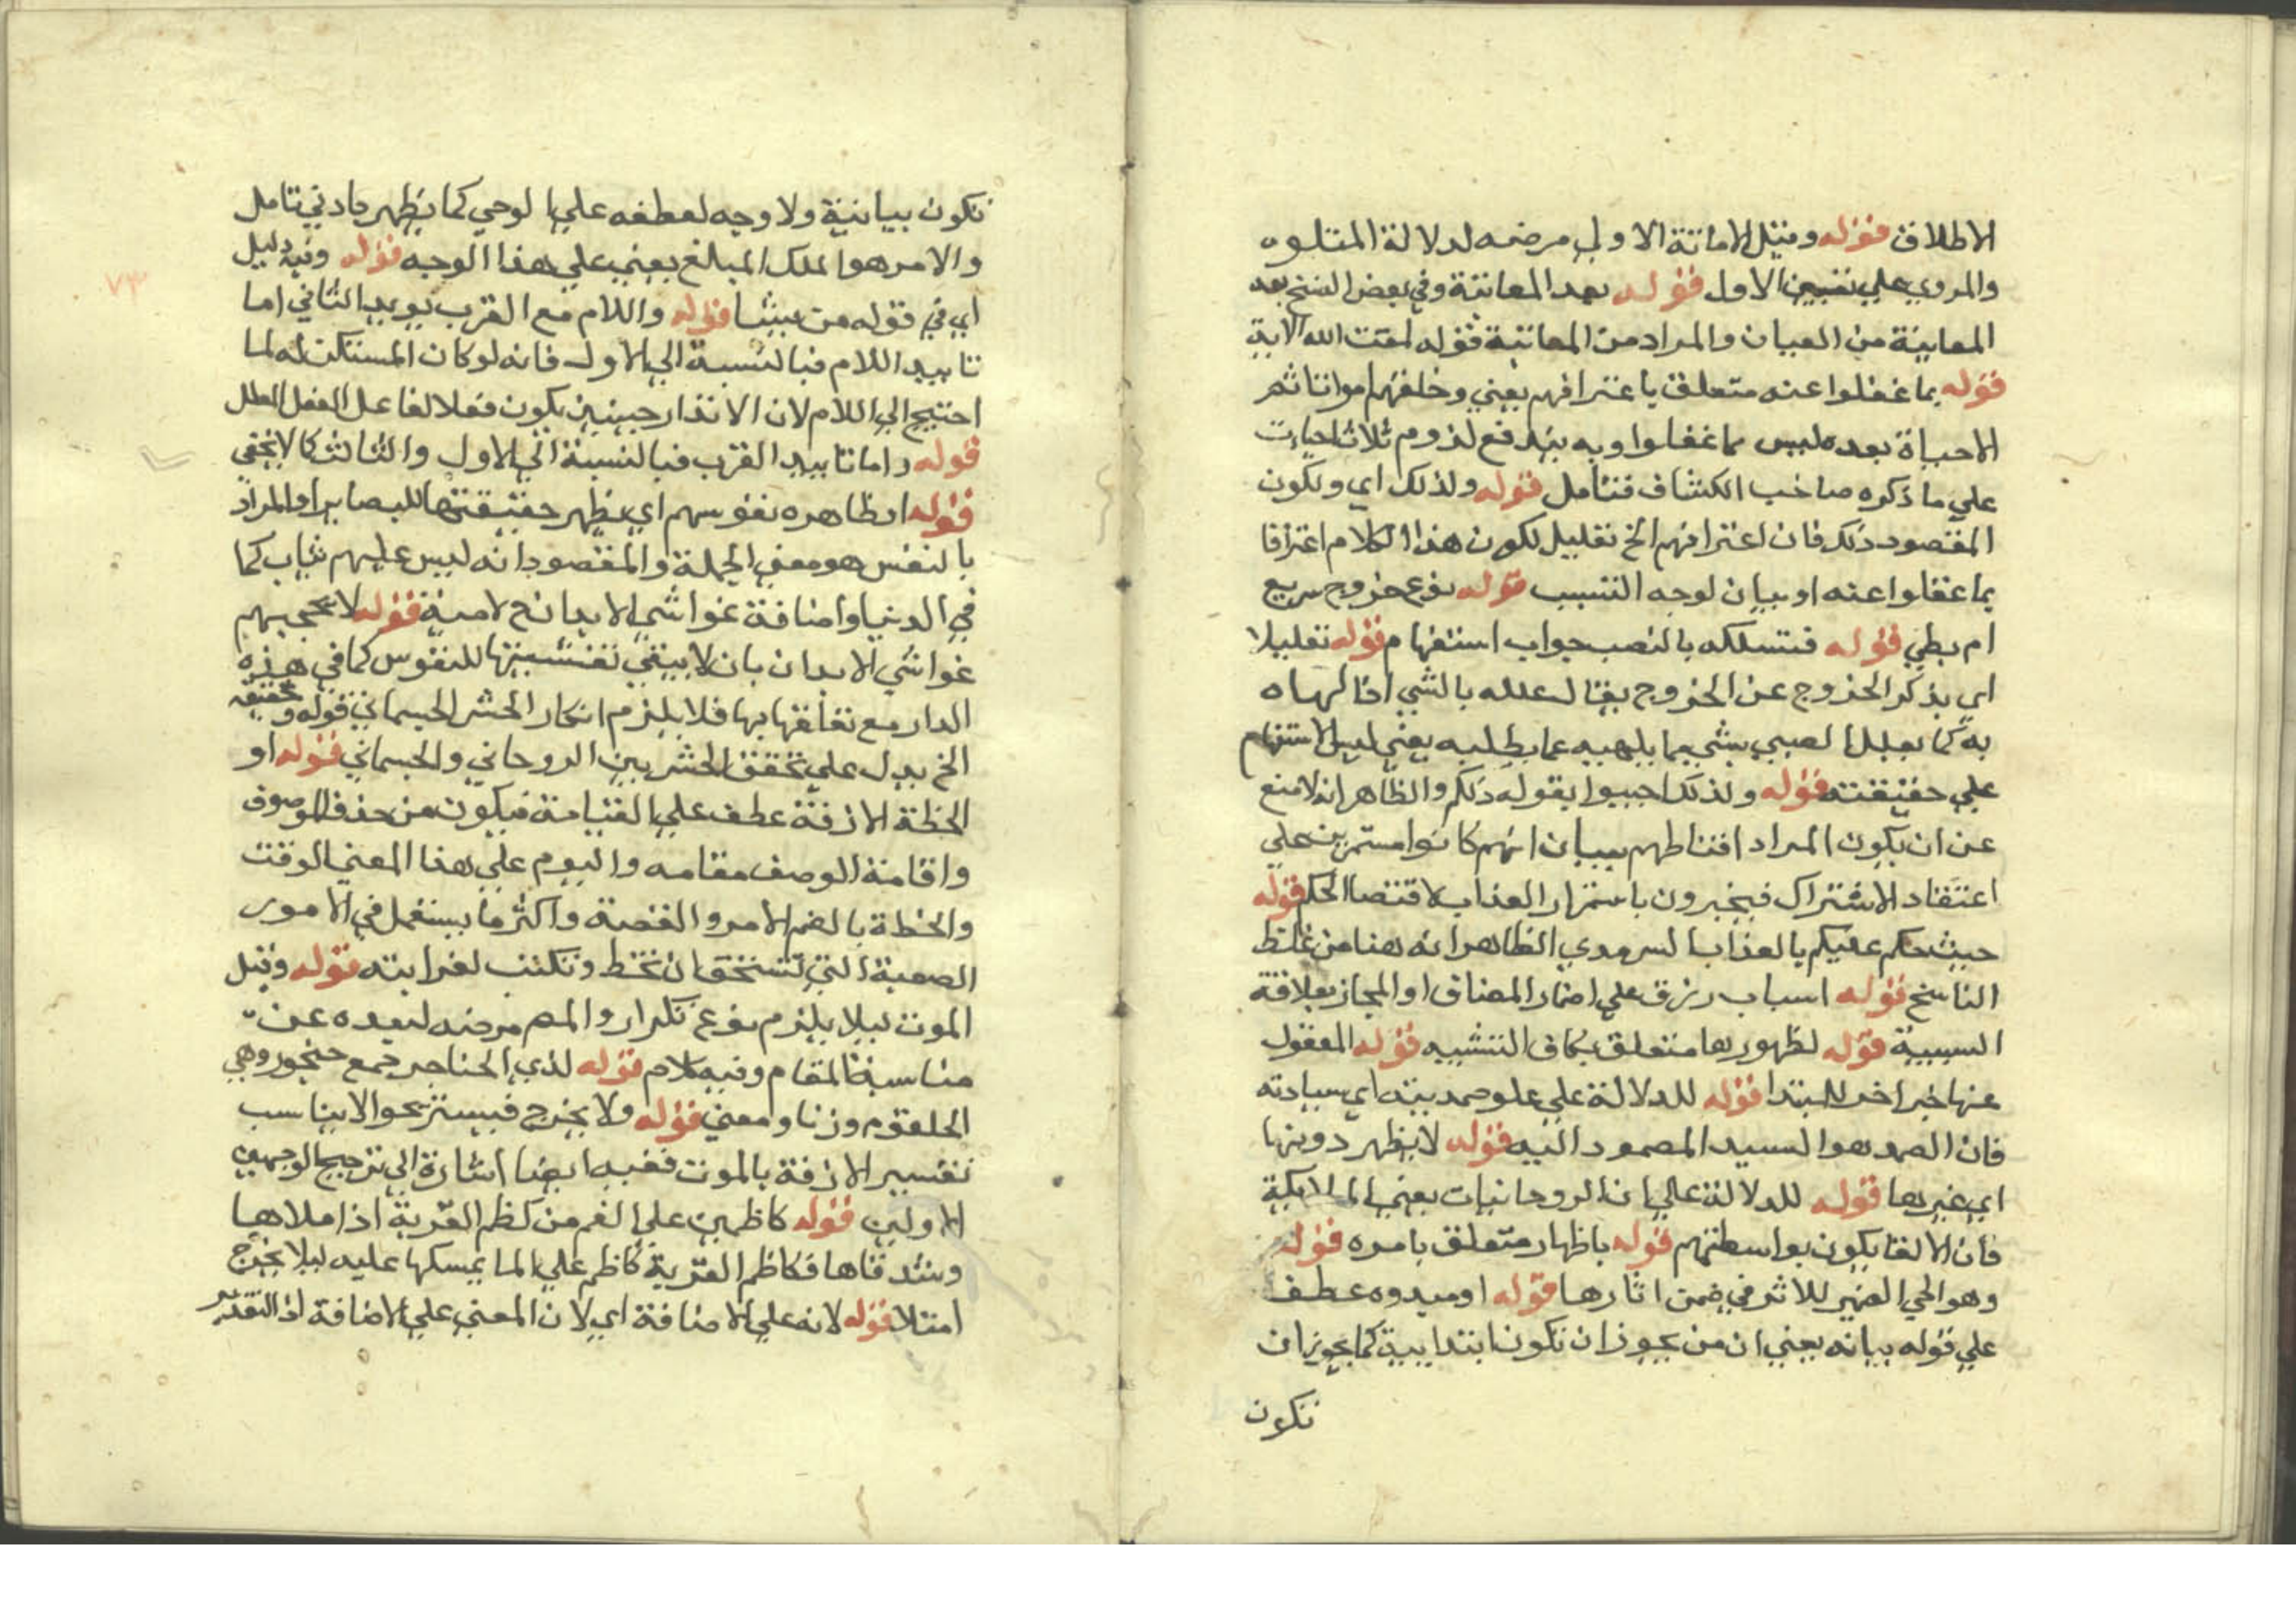 الاطلاق قوله وقيل الاماتة الاولي مرضه لدلالة المتلوه
والمروي علي نفيين الاول قوله بعد المعاتبة وفي بعض النسخ بعد
المعاينة من العيان والمراد من المعاتبة قوله لمقت الله الاية
قوله بما غفلوا عنه متعلق باعترافهم يعني وخلقهم امواتا ثم
الاحياة بعده ليس مما غفلوا وبه يندفع لزوم ثلاث احياات
علي ما ذكره صاحب الكشاف فتامل قوله ولذلك اي ولكون
المقصود ذلك فان اعترافهم الخ تعليل لكون هذا الكلام اعترافا
بما غفلوا عنه او بيان لوجه التسبب قوله نوع خروج سريع
ام بطي قوله فتسلكه بالنصب جواب استفهام قوله تعليلا
اي بذكر الخروج عن الخروج يقال علله بالشي اذا لهاه
به كما يعلل الصبي بشي مما يلهيه عما يطلبه يعني ليس الاستفهام
علي حقيقته قوله ولذلك اجيبوا بقوله ذلكم والظاهر انه لا منع
عن ان يكون المراد اقناطهم ببيان انهم كانوا مستمرين علي
اعتقاد الاشتراك فيخبرون باستمرار العذاب لاقتضا الحكم قوله
حيث حكم عليكم بالعذاب السرمدي الظاهر انه هنا من غلط
الناسخ قوله اسباب رزق علي اضمار المضاف او المجاز بعلاقة
السببية قوله لظهورها متعلق بكاف التشبيه قوله المعقول
عنها خبر اخر للمبتدا قوله للدلالة علي علو صمديته اي سيادته
فان الصمد هو السيد المصمود اليه قوله لا يظهر دونها
اي غيرها قوله للدلالة علي ان الروحانيات يعني الملائكة
فان الالقا يكون بواسطتهم قوله باظهار متعلق بامره قوله
وهو الحي الضمير للاثر في ضمن اثارها قوله او مبدوه عطف
علي قوله بيانه يعني ان من يجوز ان تكون ابتدايية كما يجوز ان
تكون
تكون بيانية ولا وجه لعطفه علي الوحي كما يظهر بادني تامل
والامر هو الملك المبلغ يعني علي هذا الوجه قوله وفيه دليل
اي في قوله من يشا قوله واللام مع القرب يويد الثاني اما
تاييد اللام فبالنسبة الي الاول فانه لو كان المستكن له لما
احتيج الي اللام لان الانذار حينين يكون فعلا لفاعل الفعل المعلل
قوله واما تاييد القرب فبالنسبة الي الاول والثالث كما لا يخفي
قوله او ظاهره نفوسهم اي يظهر حقيقتها للبصاير او المراد
بالنفس هو معني الجملة والمقصود انه ليس عليهم ثياب كما
في الدنيا واضافة غواشي الابدان ح لامية قوله لا يحجبهم
غواشي الابدان بان لا يبقي تغشيتها للنفوس كما في هذه
الدار مع تعلقها بها فلا يلزم انكار الحشر الجسماني قوله وتحقيقه
الخ يدل علي تحقق الحشر بين الروحاني والجسماني قوله او
الخطة الازفة عطف علي القيامة فيكون من حذف الموصوف
واقامة الوصف مقامه واليوم علي هذا المعني الوقت
والخطة بالضم الامر والقصة واكثر ما يستعمل في الامور
الصعبة التي تستحق ان تخط وتكتب لغرابته قوله وقيل
الموت ليلا يلزم نوع تكرار والمص مرضه لبعده عن
مناسبة المقام وفيه كلام قوله لذي الحناجر جمع حنجور وهي
الحلقوم وزنا ومعني قوله ولا يخرج فيستريحوا لا يناسب
تفسير الازفة بالموت ففيه ايضا اشارة الي ترجيح الوجهين
الاولين قوله كاظمين علي الغم من كظم القربة اذا ملاها
وشد فاها فكاظم القربة كاظم علي الما يمسكها عليه ليلا يخرج
امتلا قوله لانه علي الاضافة اي لان المعني علي الاضافة اذ التقدير
٧٣